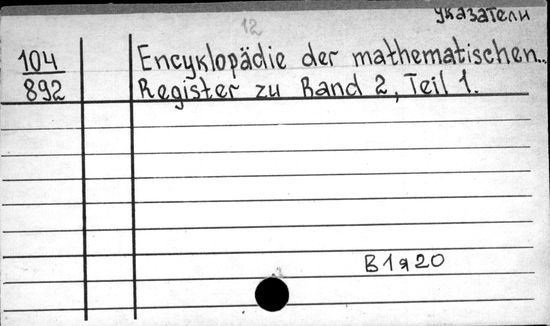 указатели
12
104
892
Encyklopädie der mathematischen..
Register zu Band 2, Teil 1.
В1я20